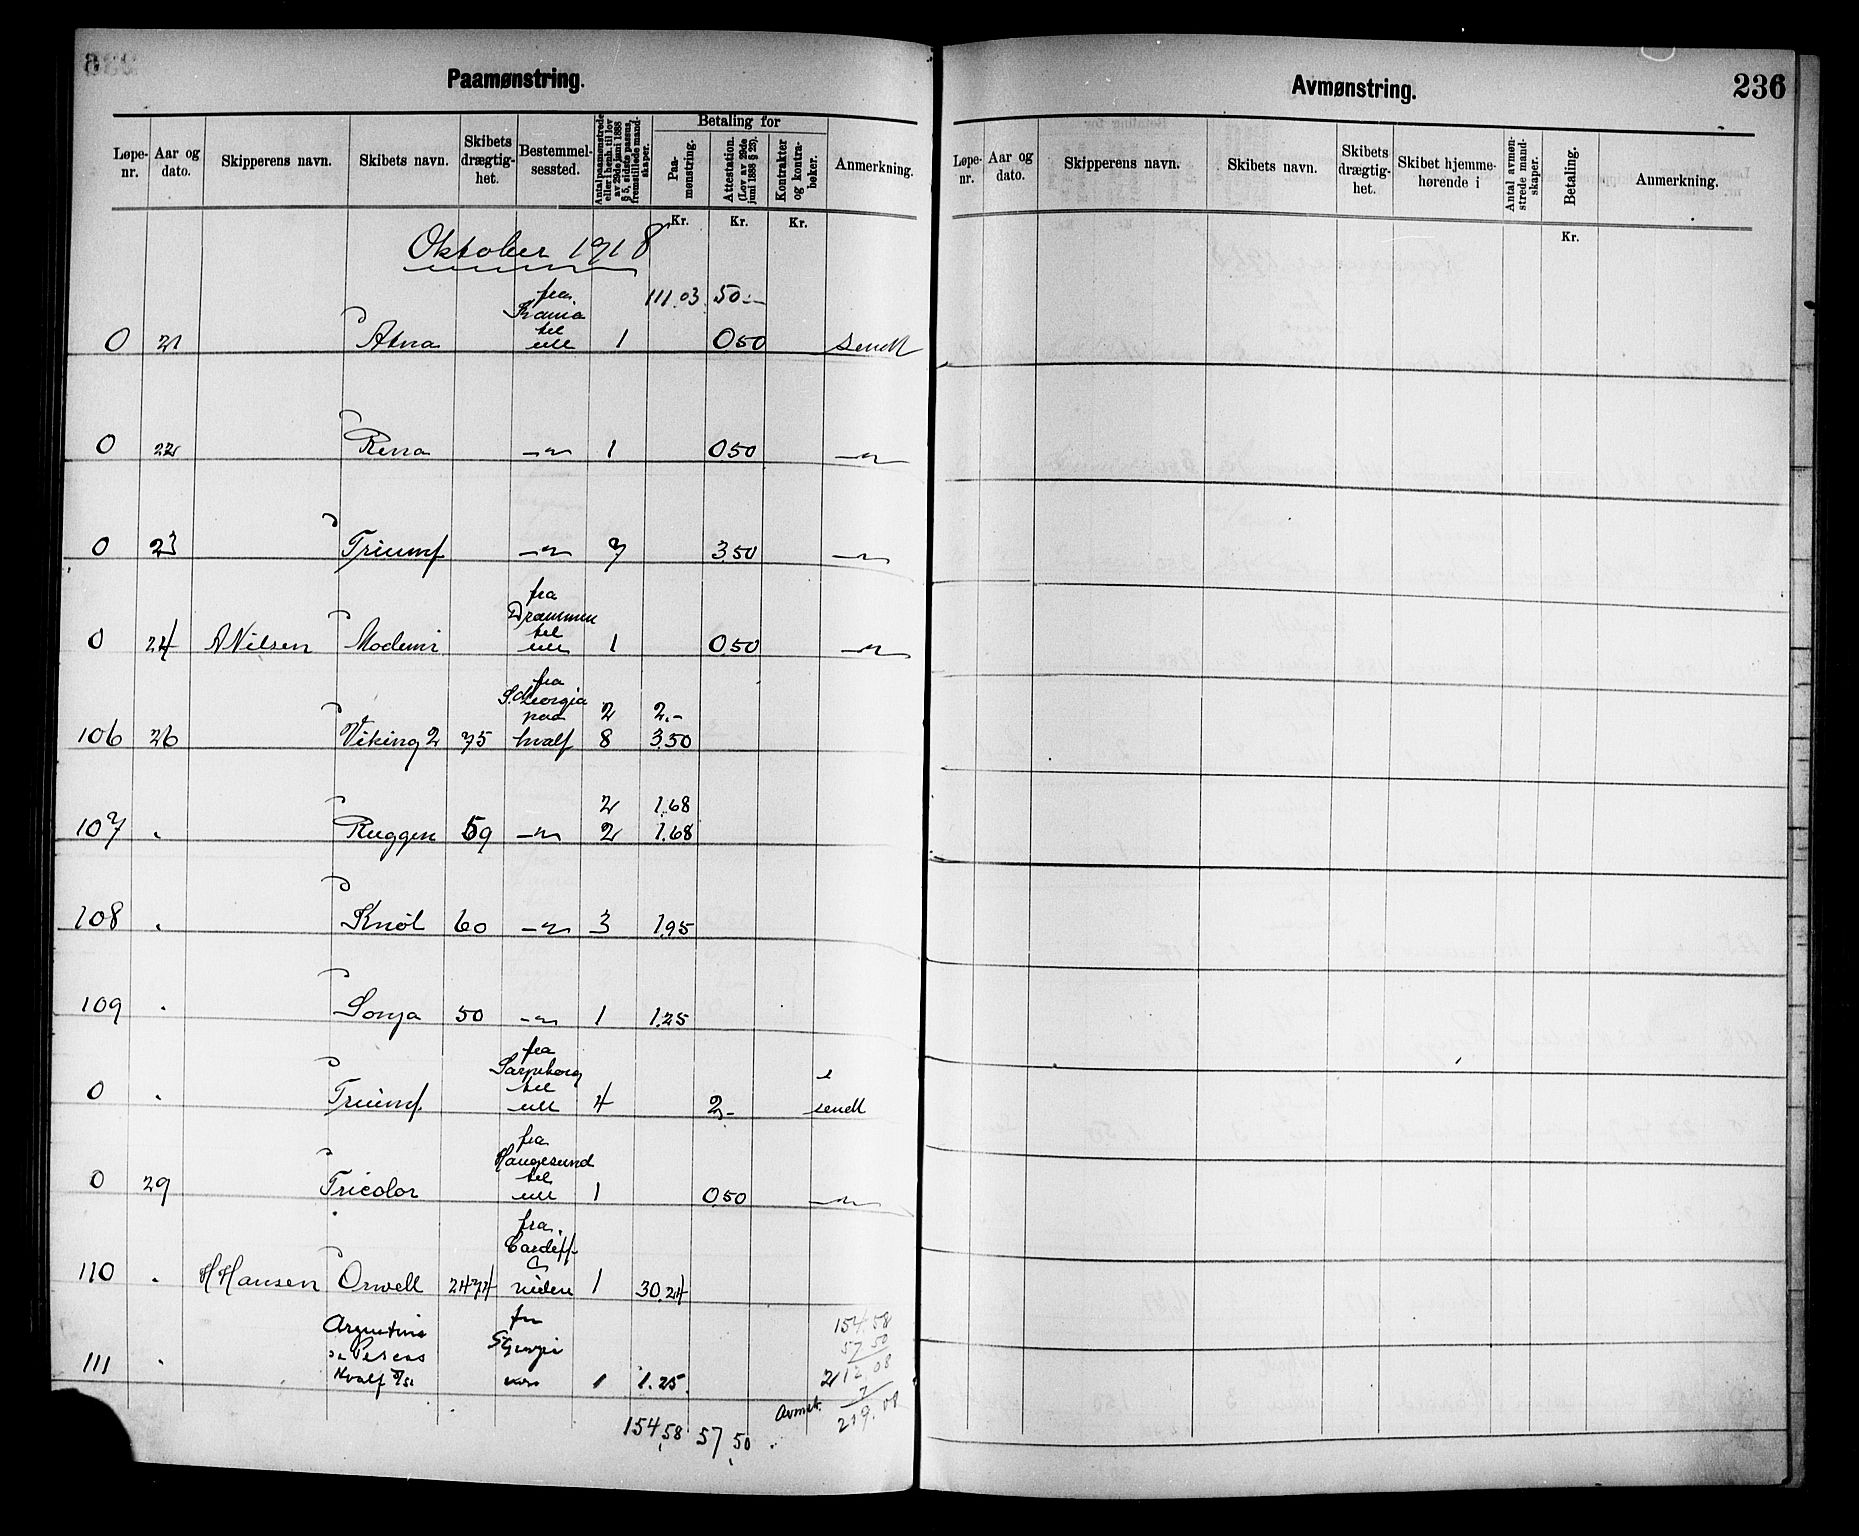 Paamønstring.
Løpe-nr. Aar og dato. Skipperens navn. Skibets navn. Skibets drægtig-het. Bestemmel-sessted. Antal paamønstrede eller i henh. til lov av 29de juni 1888 § 5, sidste passus, fremstillede mand-skaper. Betaling for Paa-mønstring. Attestation. (Lov av 29de juni 1888 § 23). Kontrakter og kontra-bøker. Anmerkning.
Kr. Kr. Kr.
Oktober 1918
111.03 50.-
fra Krania til
0 21 Atna ell 1 0.50 sendt
0 22 Rena -"- 1 0.50 -"-
0 23 Triumf -"- 7 3.50 -"-
fra Drammen til
0 24 A Nilsen Moderni ell 1 0.50 -"-
fra S. Georgia paa 2 2.-
106 26 Viking 2 75 hvalf 8 3.50
2 1.68
107 . Ruggen 59 -"- 2 1.68
108 . Knöl 60 -"- 3 1.95
109 . Sonja 50 -"- 1 1.25
fra Sarpsborg til
0 . Triumf ell 4 2.- sendt
fra Haugesund til
0 29 Tricolor ell 1 0.50 -"-
fra Cardiff &
110 . H Hansen Orwell 2474 videre 1 30.24
Argentina fra 154.58
de Pesca S Georgia 57 50
111 . Hvalf 1 1.25 212.08
7
Avmst. 219.08
154.58 57.50
Avmønstring.
236
Løpe-nr. Aar og dato. Skipperens navn. Skibets navn. Skibets drægtig-het. Skibet hjemme-hørende i Antal avmøn-strede mand-skaper. Betaling. Anmerkning.
Kr.